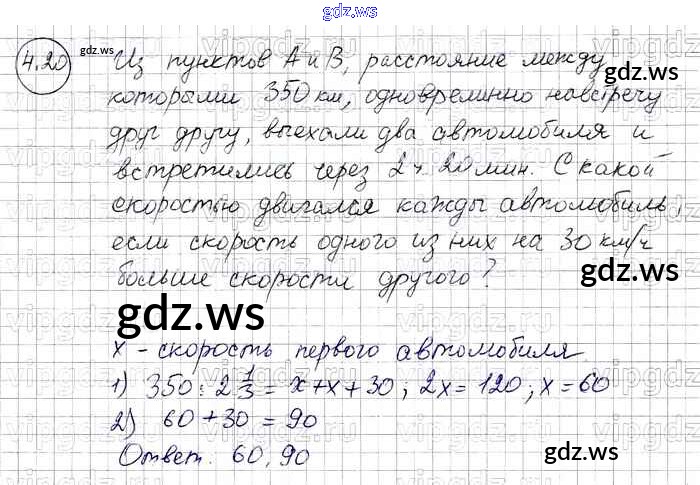 gdz.ws
4.20
gdz.ws
Из пунктов А и В, расстояние между
gdz.ws
которыми 350 км, одновременно навстречу
друг другу, выехали два автомобиля и
встретились через 2 ч 20 мин. С какой
скоростью двигался кажды автомобиль,
если скорость одного из них на 30 км/ч
больше скорости другого?
gdz.ws
x - скорость первого автомобиля
1) 350 : 2 1/3 = x + x + 30; 2x = 120; x = 60
gdz.ws
2) 60 + 30 = 90
Ответ: 60, 90
gdz.ws